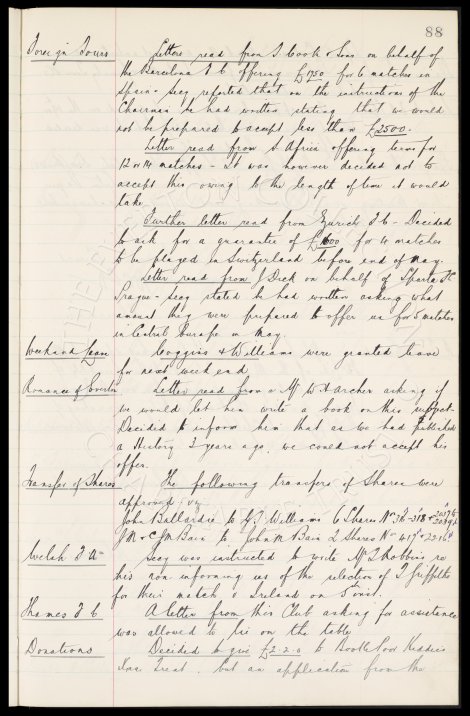 88
Foreign Tours Letter read from T. Cook & Sons on behalf of
the Barcelona F C offering £1750 for 6 matches in
Spain - Secy reported that on the instructions of the
Chairman he had written stating that we would
not be prepared to accept less than £2500.
Letter read from S. Africa offering terms for
12 or 14 matches - It was however decided not to
accept this owing to the length of time it would
take.
Further letter read from Zurich F C - Decided
to ask for a guarantee of £1600 for 4 matches
to be played in Switzerland before end of May.
Letter read from J Dick on behalf of Sparta F C
Prague - Secy stated he had written asking what
amount they were prepared to offer us for 5 matches
in Central Europe in May.
Weekend leave Coggins & Williams were granted leave
for next week end
Romance of Everton Letter read from Mr W. A Archer asking if
we would let him write a book on this subject.
Decided to inform him that as we had published
a History 3 years ago, we could not accept his
offer.
Transfer of Shares The following transfers of Shares were
approved: viz
John Ballardie to G. J Williams 6 Shares Nos
J M & C J M Bain to John M Bain 2 Shares Nos 417 & 2216
Welsh F. A. Secy was instructed to write Mr T Robbins re
his non informing us of the selection of T Griffiths
for their match v Ireland on 5 inst.
Thames F C A letter from this Club asking for assistance
was allowed to lie on the table
Donations Decided to give £2.2.0 to Bootle Poor Kiddies
Xmas Treat, but an application from the